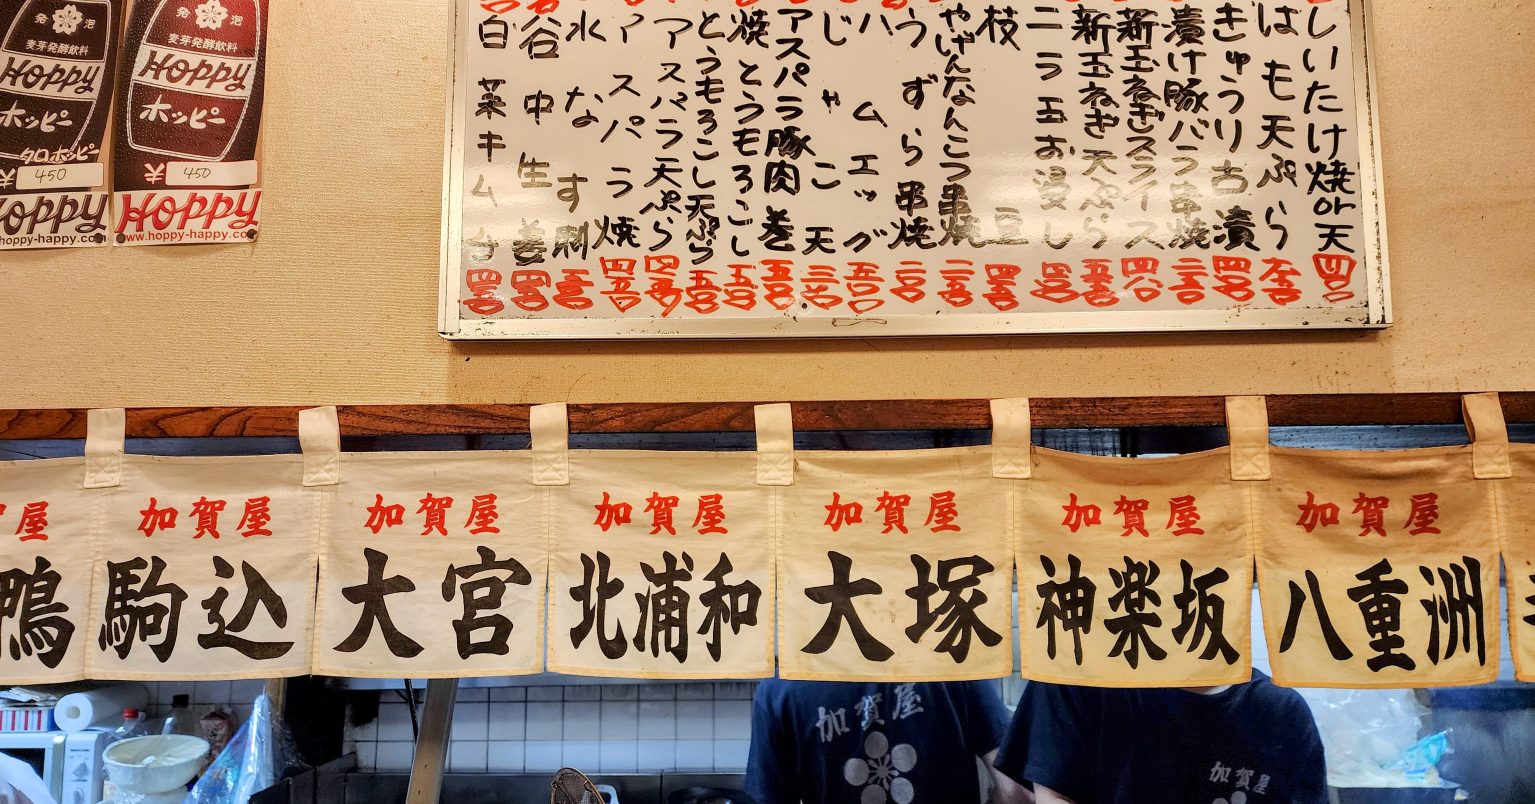 発 泡
麦芽発酵飲料
Hoppy
ホッピー
クロホッピー
¥ 450
HOPPY
hoppy-happy.co
発 泡
麦芽発酵飲料
Hoppy
ホッピー
¥ 450
HOPPY
www.hoppy-happy.co
しいたけ焼or天
はも天ぷら
きゅうり古漬
漬け豚バラ串焼
新玉ねぎスライス
新玉ねぎ天ぷら
ニラ玉お浸し
枝豆
やげんなんこつ串焼
うずら串焼
ハムエッグ
じゃこ天
アスパラ豚肉巻
焼とうもろこし
とうもろこし天ぷら
アスパラ天ぷら
アスパラ焼
水なす刺
谷中生姜
白菜キムチ
賀屋
鴨
加賀屋
駒込
加賀屋
大宮
加賀屋
北浦和
加賀屋
大塚
加賀屋
神楽坂
加賀屋
八重洲
加賀屋
加賀屋